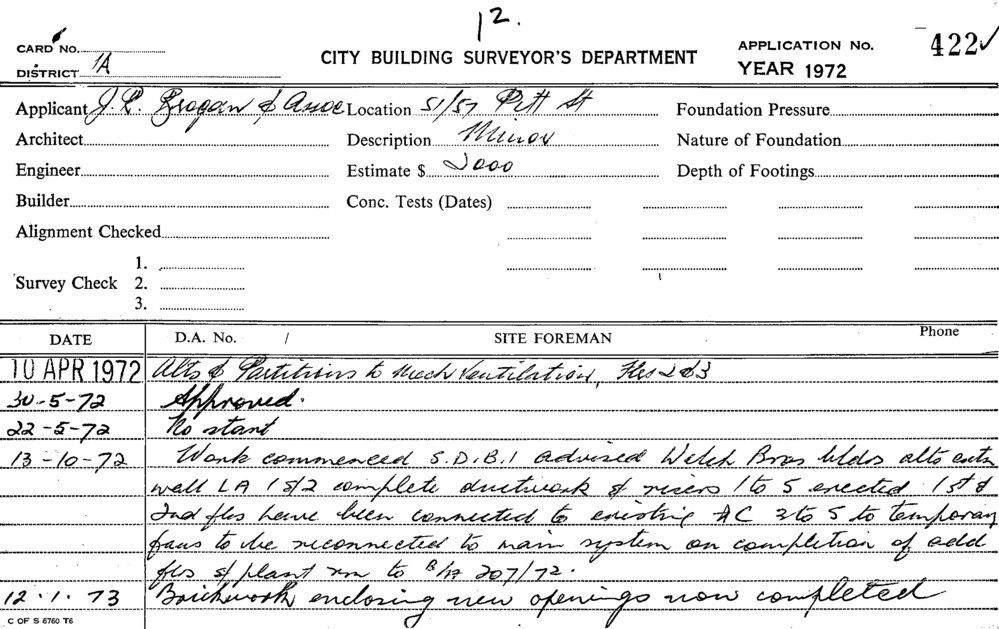 12.
CARD No.
DISTRICT 1A
CITY BUILDING SURVEYOR'S DEPARTMENT
APPLICATION No. 422✓
YEAR 1972
Applicant J. L. & Assoc Location 51/57 Pitt St Foundation Pressure
Architect Description Minor Nature of Foundation
Engineer Estimate $ 2000 Depth of Footings
Builder Conc. Tests (Dates)
Alignment Checked
Survey Check 1.
2.
3.
DATE D.A. No. / SITE FOREMAN Phone
10 APR 1972 Alts & Partitions to Mech Ventilation, Flrs 2 & 3
30-5-72 Approved.
22-5-72 No start
13-10-72 Work commenced S.D.B.I advised Welch Bros bldrs alts
wall LA 1 & 2 complete ductwork & risers 1 to 5 erected 1st &
2nd flrs have been connected to existing AC 3 to 5 to temporary
fans to be reconnected to main system on completion of add
flrs &/plant rm to B/A 207/72.
12.1.73 Brickwork enclosing new openings now completed
C OF S 6760 T6